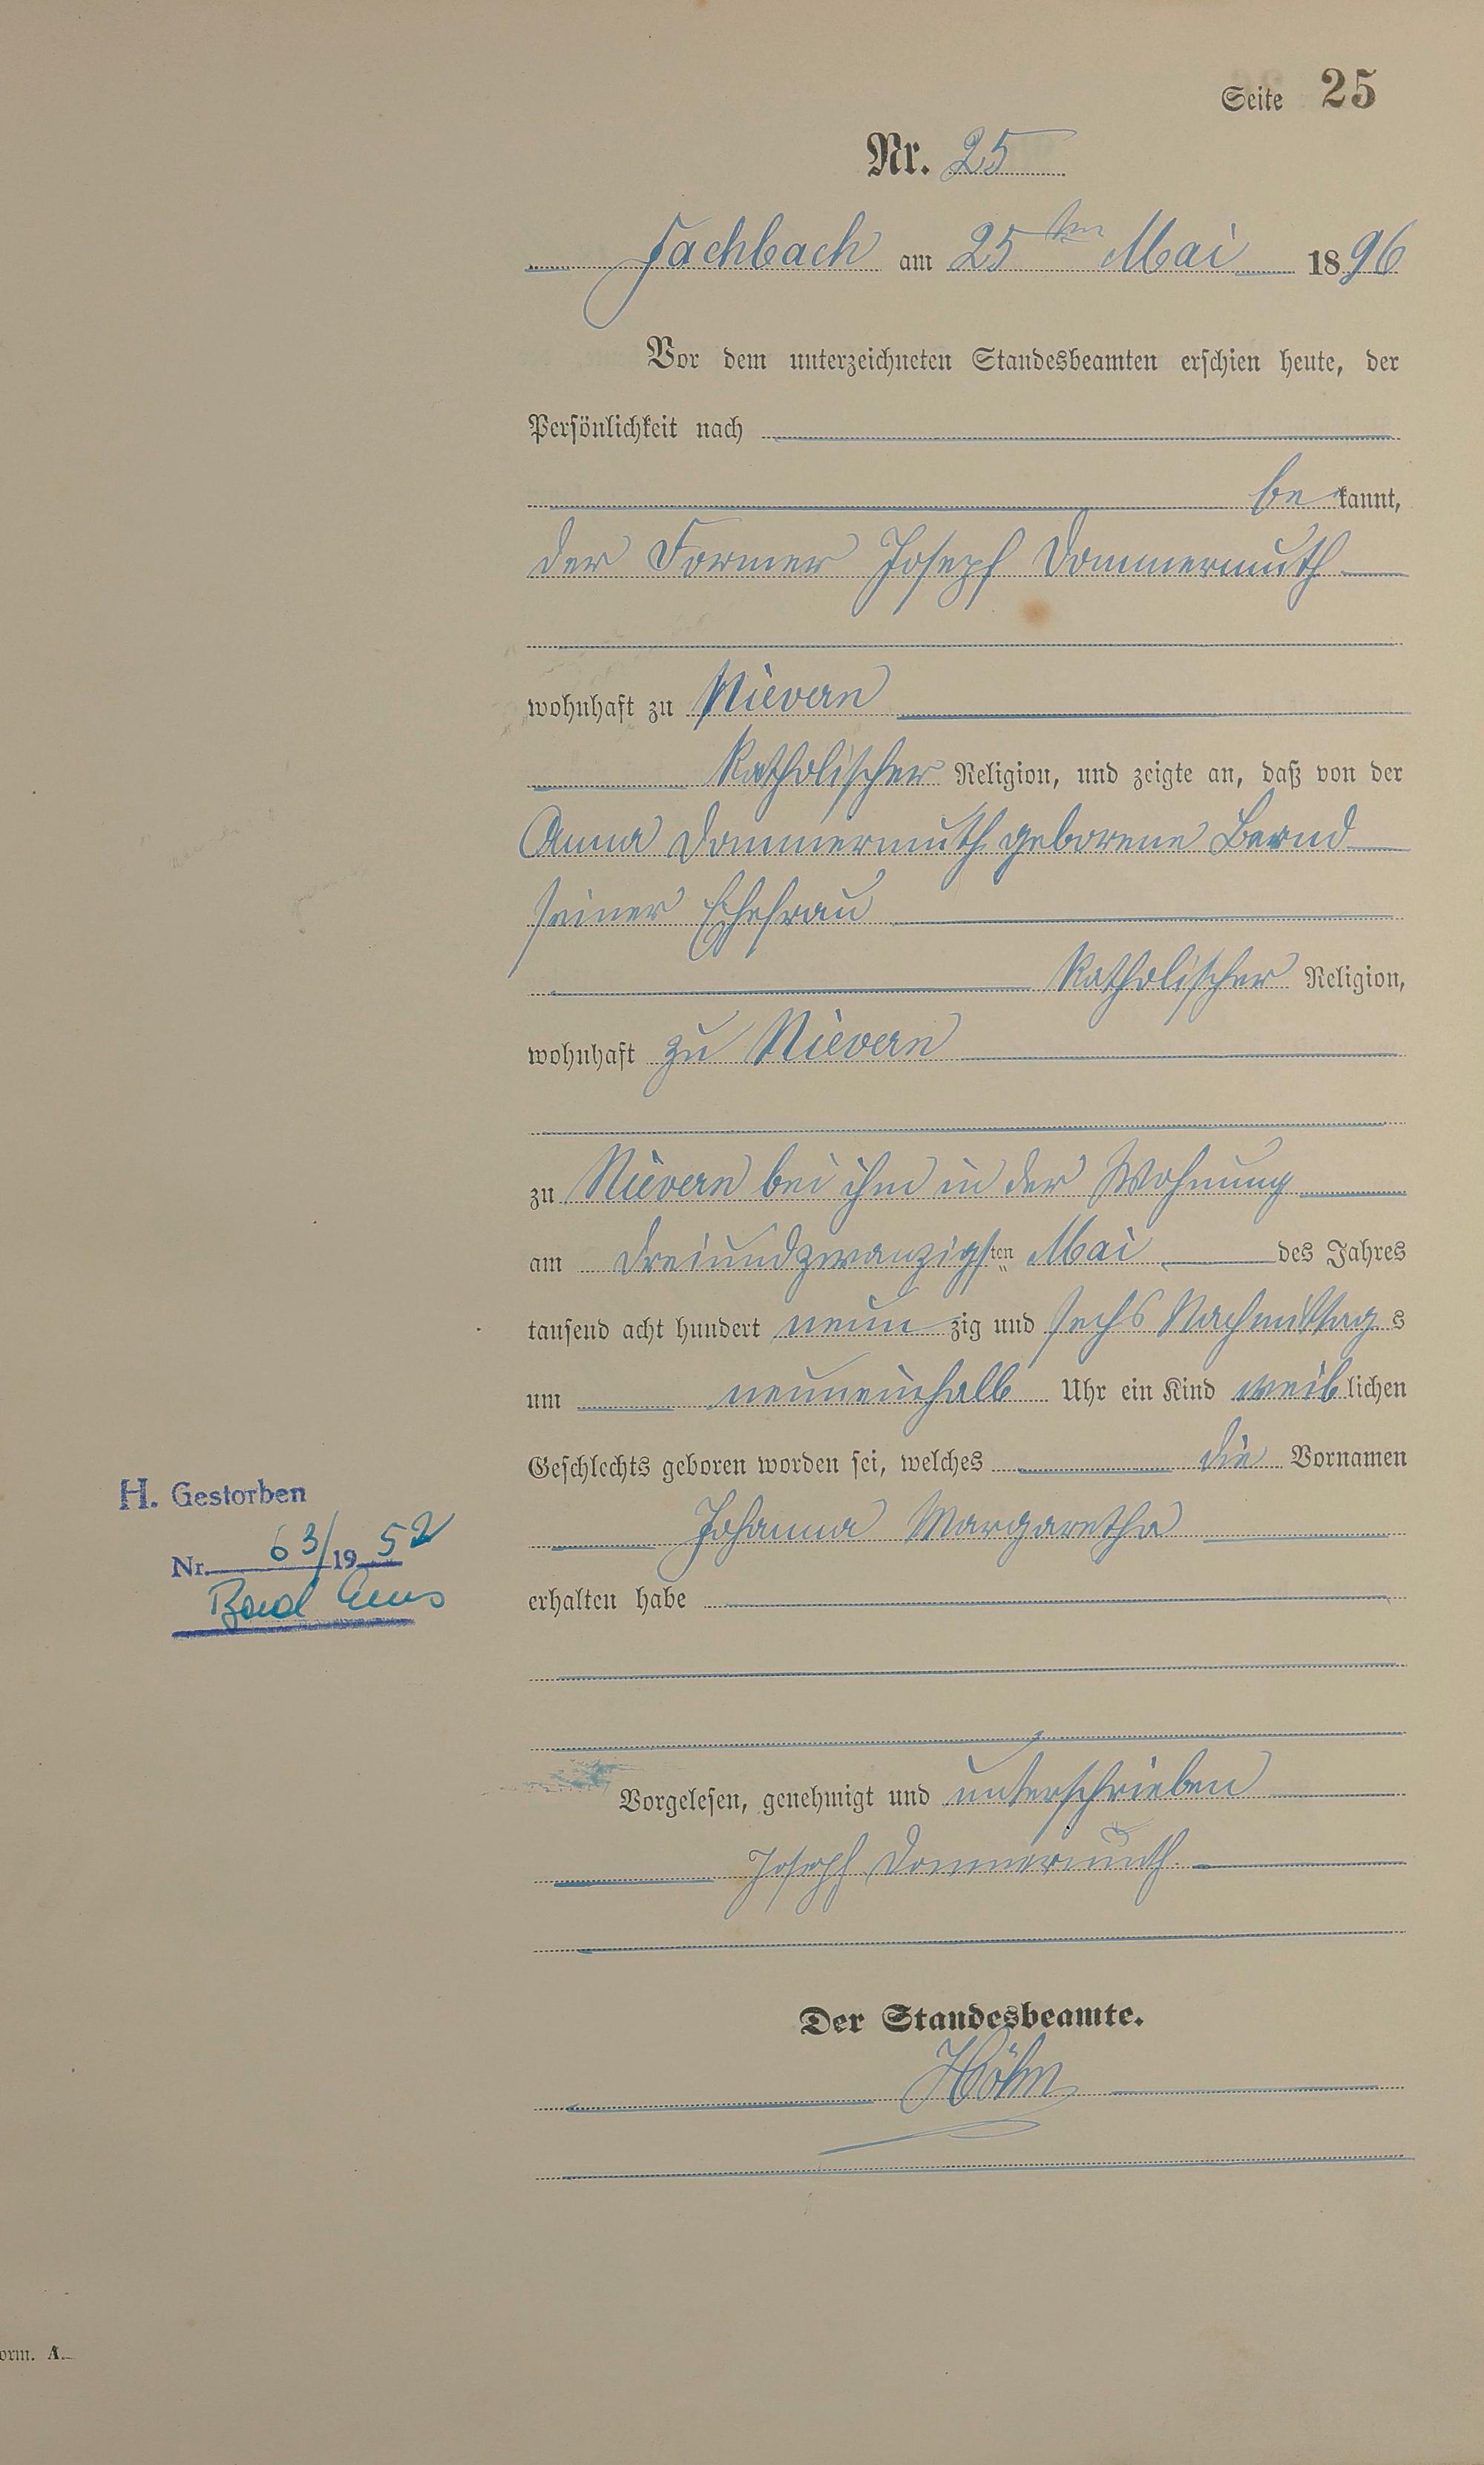 Seite 25
Nr. 25
Fachbach am 25ten Mai 1896
Vor dem unterzeichneten Standesbeamten erschien heute, der
Persönlichkeit nach
bekannt,
der Former Joseph Dommermuth
wohnhaft zu Nievern
katholischer Religion, und zeigte an, daß von der
Anna Dommermuth geborene Bernd
seiner Ehefrau
katholischer Religion,
wohnhaft zu Nievern
zu Nievern bei ihm in der Wohnung
am dreiundzwanzigsten Mai des Jahres
tausend acht hundert neunzig und sechs Nachmittags
um neuneinhalb Uhr ein Kind weiblichen
Geschlechts geboren worden sei, welches die Vornamen
Johanna Margaretha
erhalten habe
H. Gestorben
Nr. 63/1952
Bad Ems
Vorgelesen, genehmigt und unterschrieben
Joseph Dommermuth
Der Standesbeamte.
Höhn
orm. A.